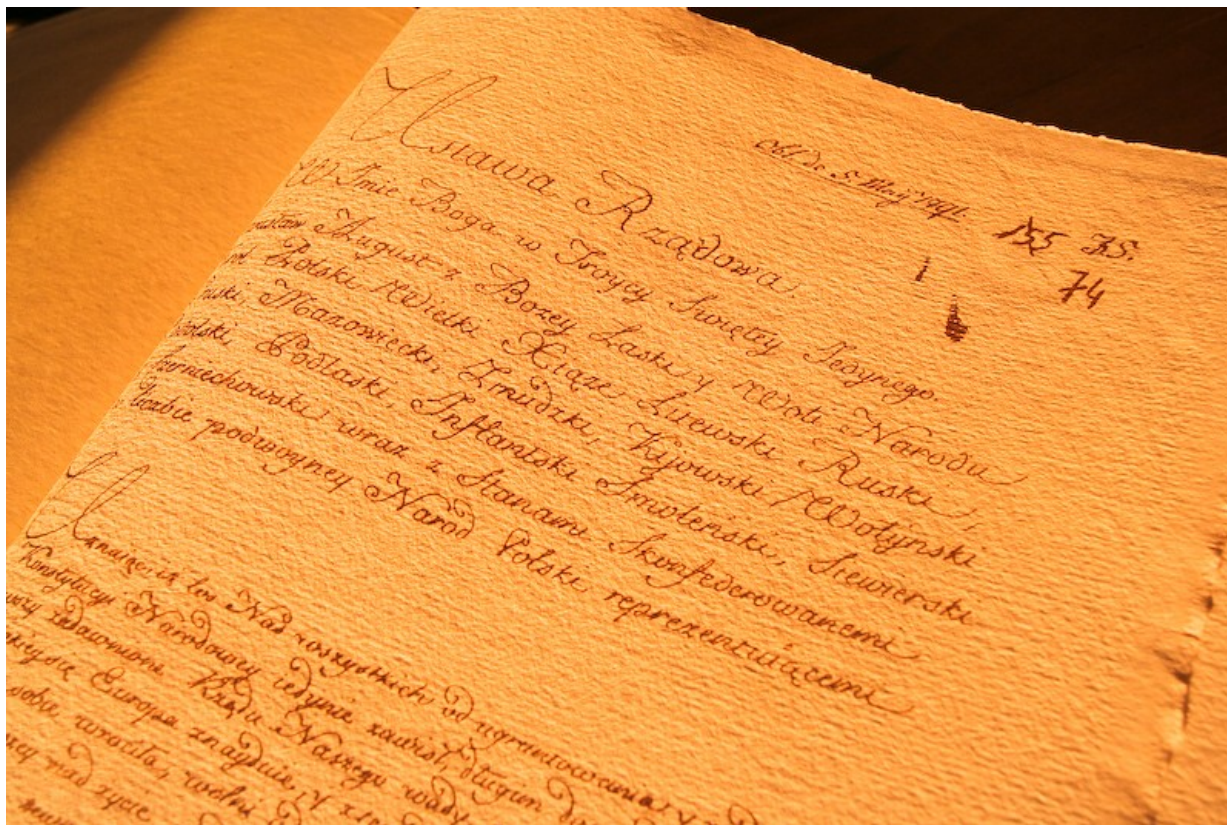 Ustawa Rządowa.
Obl. de 5. Maij 1791.
155 75.
74
W Jmie Boga w Troycy Swiętey Jedynego.
August z Bożey Łaski y Woli Narodu
Polski, Wielki Xiąże Litewski, Ruski,
Mazowiecki, Zmudzki, Kyiowski, Wołyński
Podlaski, Inflantski, Smolenski, Siewierski
wraz z Stanami Skonfederowanemi
liczbie podwoyney Narod Polski reprezentuiącemi
Uznaiąc, iż los Nas wszystkich od ugruntowania y
Konstytucyi Narodowey iedynie zawisł, długim
zadawnione Rządu Naszego wady
Europa znayduie, y z tey
wrociła, wolni
nad życie